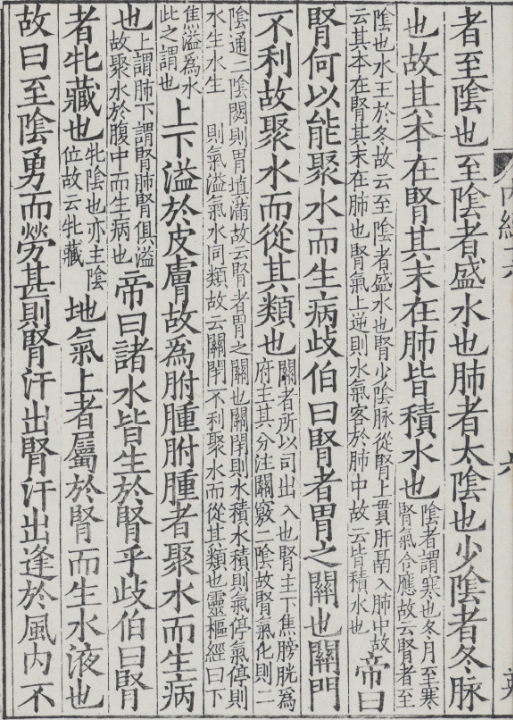 者至陰也至陰者盛水也肺者太陰也少陰者冬脉
也故其夲在腎其末在肺皆積水也
陰者謂寒也冬月至寒
腎氣合應故云腎者至
陰也水王於冬故云至陰者盛水也腎少陰脉從腎上貫肝鬲入肺中故
云其夲在腎其末在肺也腎氣上逆則水氣客於肺中故云皆積水也
帝曰
腎何以能聚水而生病歧伯曰腎者胃之關也關門
不利故聚水而從其類也
關者所以司出入也腎主下焦膀胱為
府主其分注關竅二陰故腎氣化則二
陰通二陰閟則胃塡滿故云腎者胃之關也關閉則水積水積則氣停氣停則
水生水生則氣溢氣水同類故云關閉不利聚水而從其類也靈樞經曰下
焦溢為水
此之謂也
上下溢於皮膚故為胕腫胕腫者聚水而生病
也
上謂肺下謂腎肺腎俱溢
故聚水於腹中而生病也
帝曰諸水皆生於腎乎歧伯曰腎
者牝藏也
牝陰也亦主陰
位故云牝藏
地氣上者屬於腎而生水液也
故曰至陰勇而勞甚則腎汗出腎汗出逢於風内不